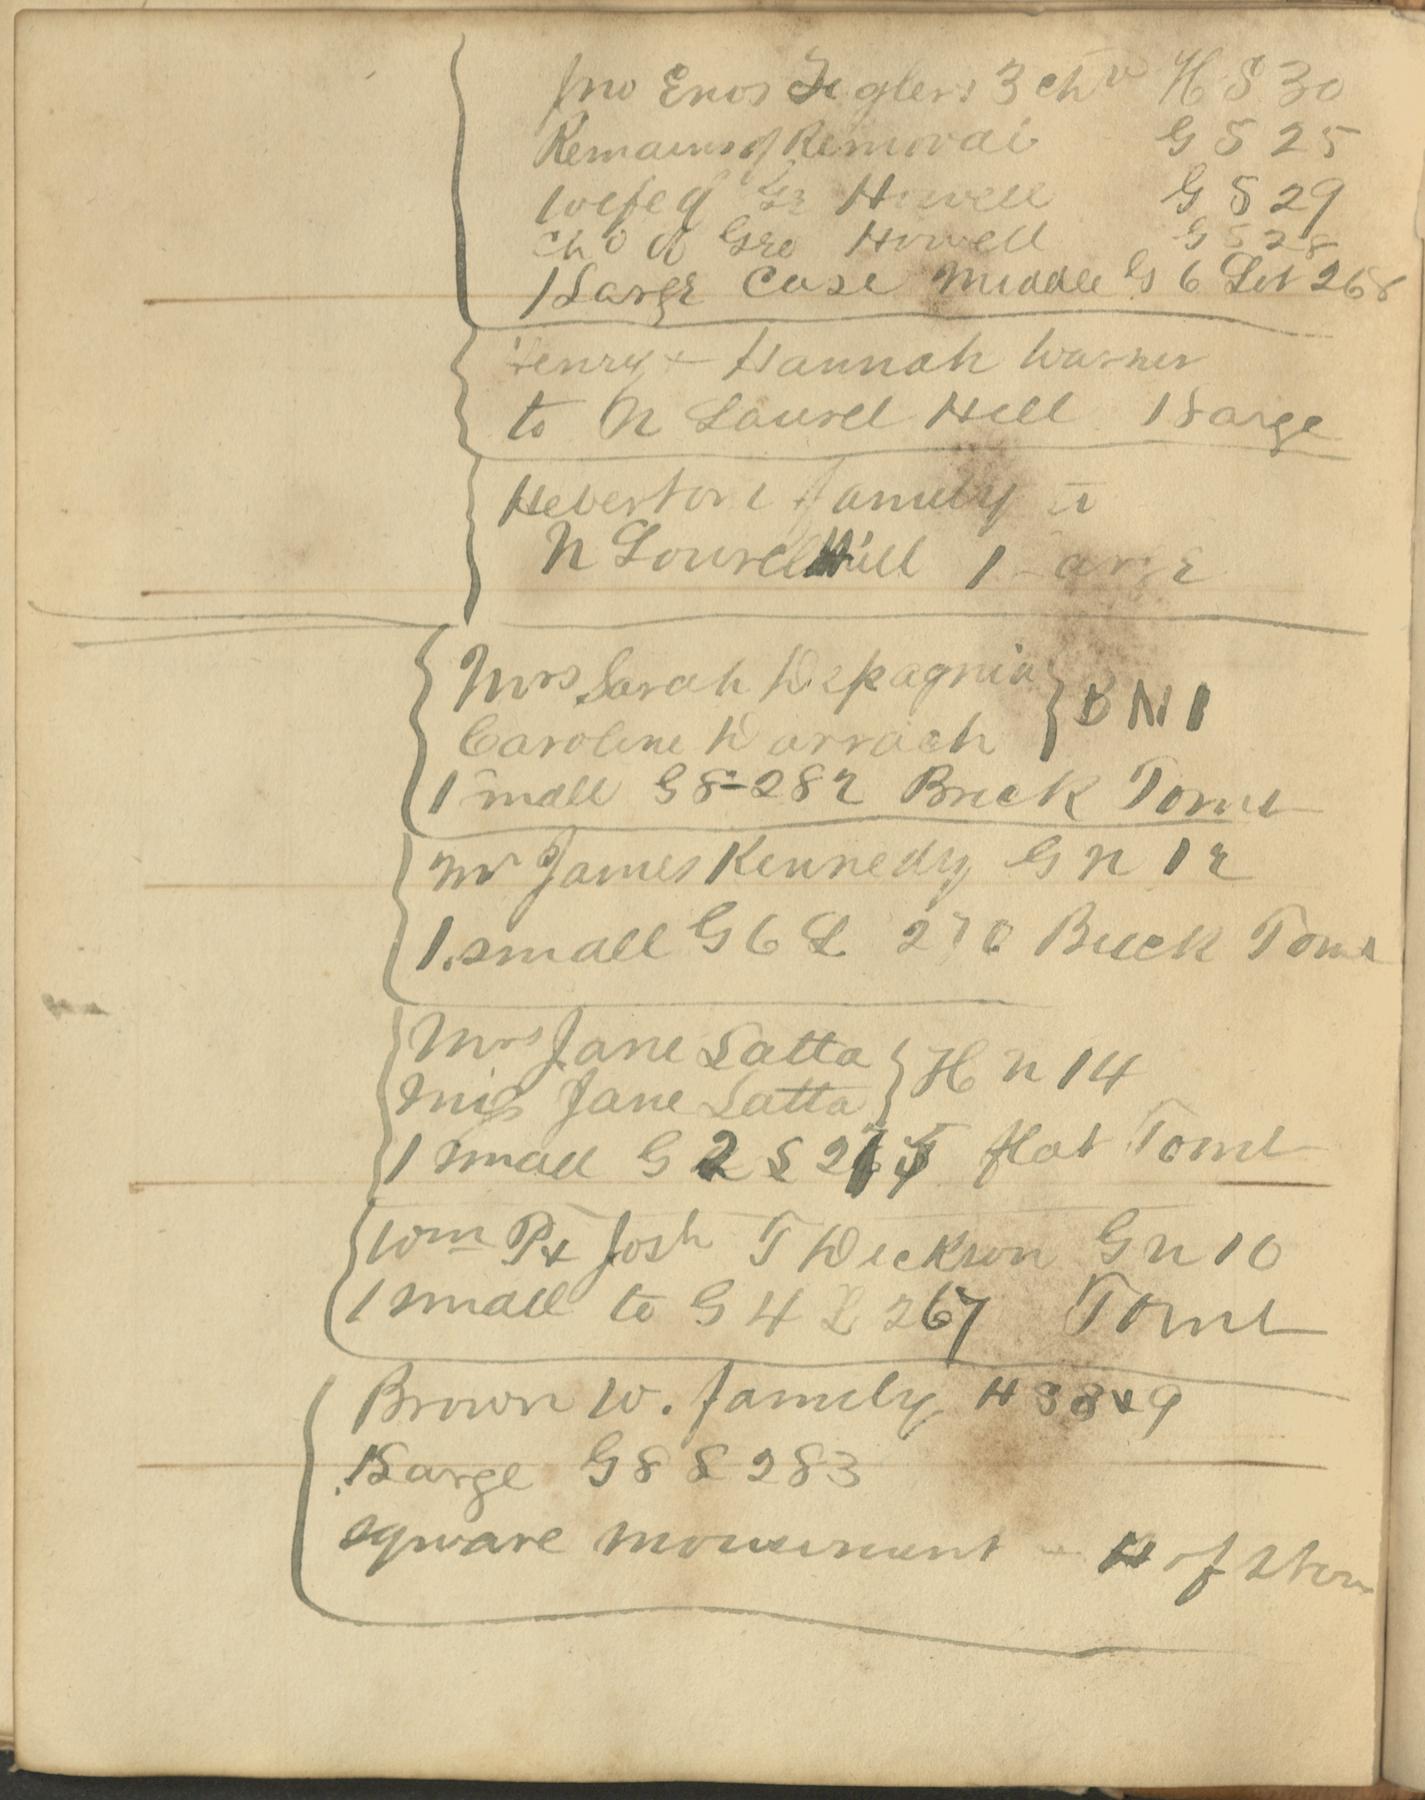 Jno Enos Zeglers 3 chn H S 30
Remains of Removal G S 25
wife of Geo Howell G S 29
chd of Geo Howell G S 28
1 Large Case Middle G 6 Lot 268
Henry + Hannah Warner
to N Laurel Hill 1 Large
Heberton family to
N Lourel Hill 1 Large
Mrs Sarah Depagnia
Caroline Darrach } B N 1
1 small G 8 - 282 Brick Tomb
Mr James Kennedy G N 12
1 small G 6 L 270 Brick Tomb
Mrs Jane Latta
Miss Jane Latta } H N 14
1 small G 2 S flat Tomb
Wm P + Josh T Dickson G N 10
1 small to G 4 L 267 Tomb
Brown W. family H S 8 + 9
1 Large G 8 L 283
square monument - H of Stone